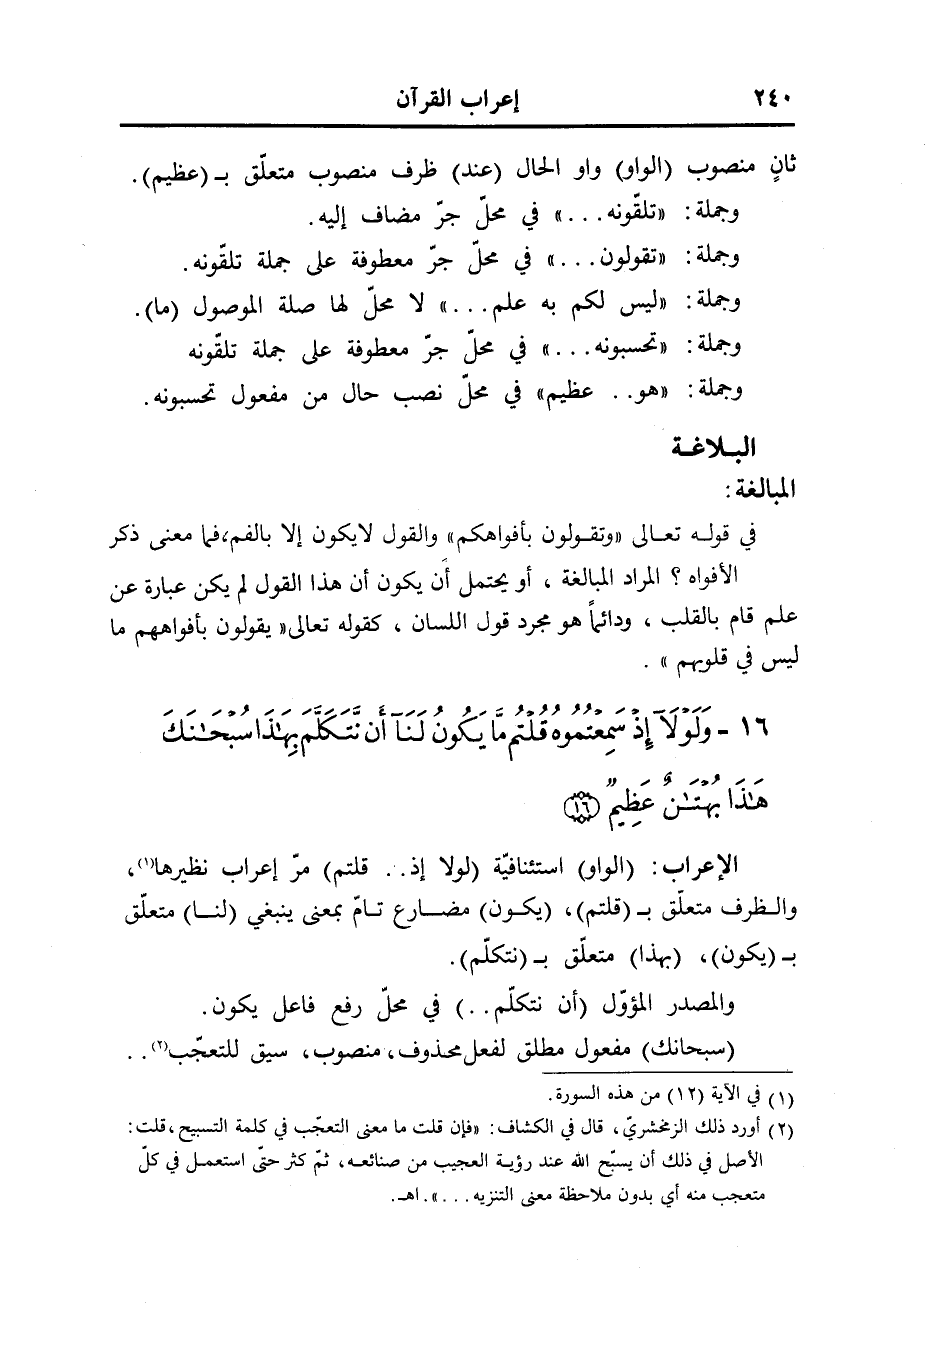 ٢٤٠ إعراب القرآن
ثانٍ منصوب (الواو) واو الحال (عند) ظرف منصوب متعلّق بـ (عظيم).
وجملة: «تلقّونه...» في محلّ جرّ مضاف إليه.
وجملة: «تقولون...» في محلّ جرّ معطوفة على جملة تلقّونه.
وجملة: «ليس لكم به علم...» لا محلّ لها صلة الموصول (ما).
وجملة: «تحسبونه...» في محلّ جرّ معطوفة على جملة تلقّونه
وجملة: «هو.. عظيم» في محلّ نصب حال من مفعول تحسبونه.
البـلاغـة
المبالغة:
في قولـه تعـالى «وتقـولون بأفواهكم» والقول لايكون إلا بالفم،فما معنى ذكر
الأفواه ؟ المراد المبالغة ، أو يحتمل أن يكون أن هذا القول لم يكن عبارة عن
علم قام بالقلب ، ودائماً هو مجرد قول اللسان ، كقوله تعالى« يقولون بأفواههم ما
ليس في قلوبهم » .
١٦ - وَلَوْلَآ إِذْ سَمِعْتُمُوهُ قُلْتُم مَّا يَكُونُ لَنَآ أَن نَّتَكَلَّمَ بِهَٰذَا سُبْحَٰنَكَ
هَٰذَا بُهْتَٰنٌ عَظِيمٌ ﴿١٦﴾
الإعراب: (الواو) استئنافيّة (لولا إذ.. قلتم) مرّ إعراب نظيرها(١)،
والـظرف متعلّق بـ (قلتم)، (يكـون) مضـارع تـامّ بمعنى ينبغي (لنـا) متعلّق
بـ (يكون)، (بهذا) متعلّق بـ (نتكلّم).
والمصدر المؤوّل (أن نتكلّم..) في محلّ رفع فاعل يكون.
(سبحانك) مفعول مطلق لفعل محذوف، منصوب، سيق للتعجّب(٢)..
(١) في الآية (١٢) من هذه السورة.
(٢) أورد ذلك الزمخشريّ، قال في الكشاف: «فإن قلت ما معنى التعجّب في كلمة التسبيح، قلت:
الأصل في ذلك أن يسبّح الله عند رؤية العجيب من صنائعه، ثمّ كثر حتّى استعمل في كلّ
متعجب منه أي بدون ملاحظة معنى التنزيه...». اهـ.